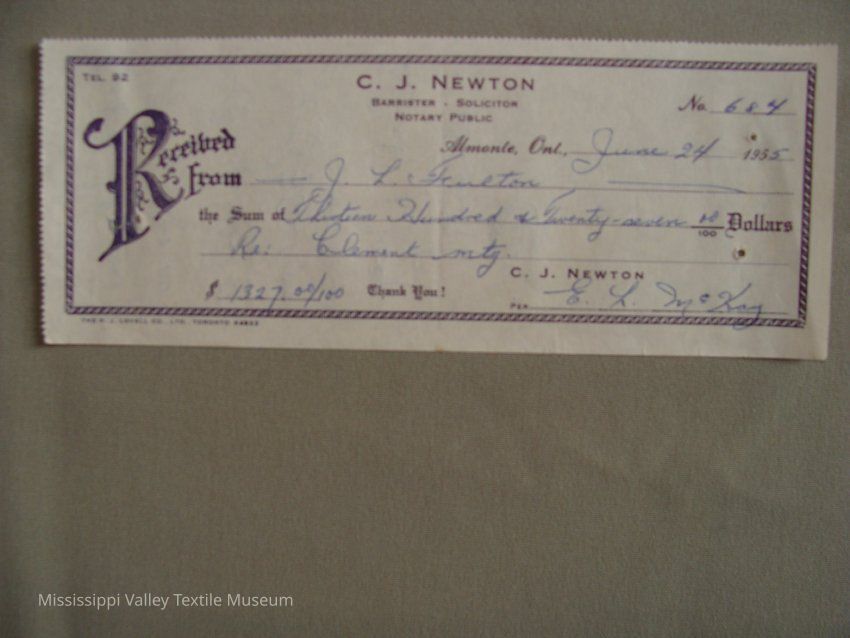 TEL. 92
C. J. NEWTON
BARRISTER - SOLICITOR
NOTARY PUBLIC
No. 684
Almonte, Ont., June 24 1955
Received from J. L. Fulton
the Sum of Thirteen Hundred & Twenty-seven 00/100 Dollars
Re: Clement mtg.
C. J. NEWTON
$ 1327.00/100 Thank You!
PER E. L. McKay
THE R. J. LOVELL CO., LTD. TORONTO
Mississippi Valley Textile Museum